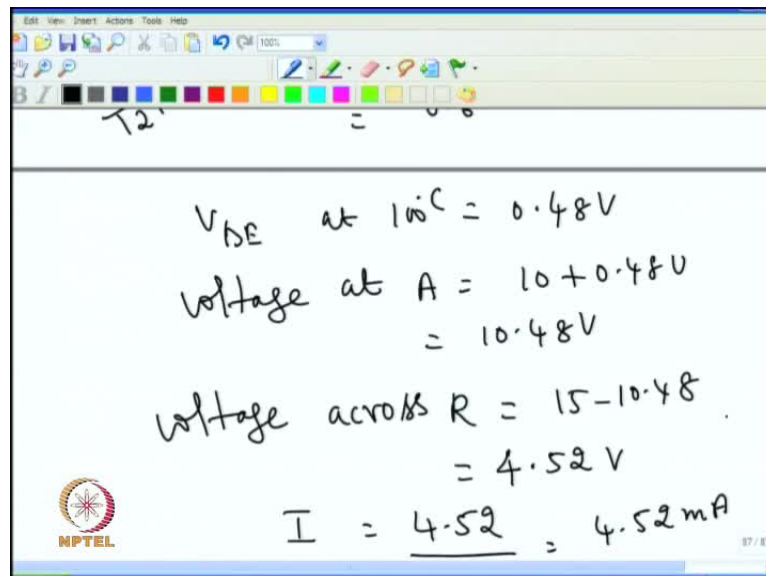 Edit View Insert Actions Tools Help
100%
B I
T2
=
VBE at 100°C = 0.48V
Voltage at A = 10 + 0.48V
= 10.48V
Voltage across R = 15 - 10.48
= 4.52 V
I = 4.52 = 4.52 mA
NPTEL
87/8